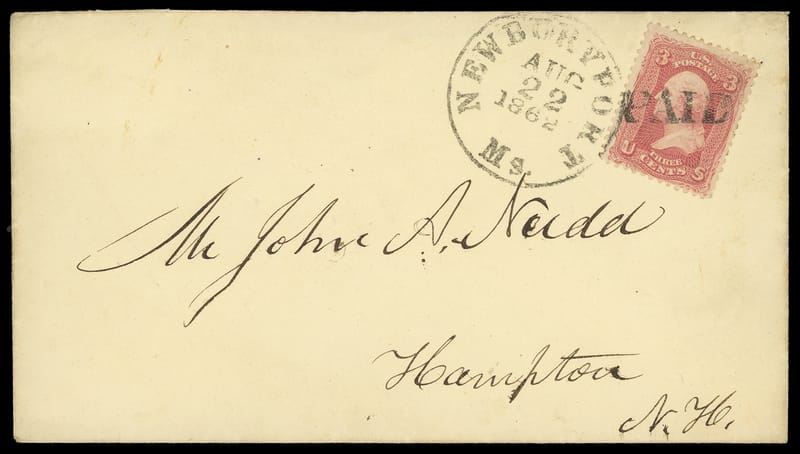 NEWBURYPORT Ms.
AUG
22
1862
3 U.S. 3
POSTAGE
PAID
THREE
U CENTS S
Mr John A. Nudd
Hampton
N. H.